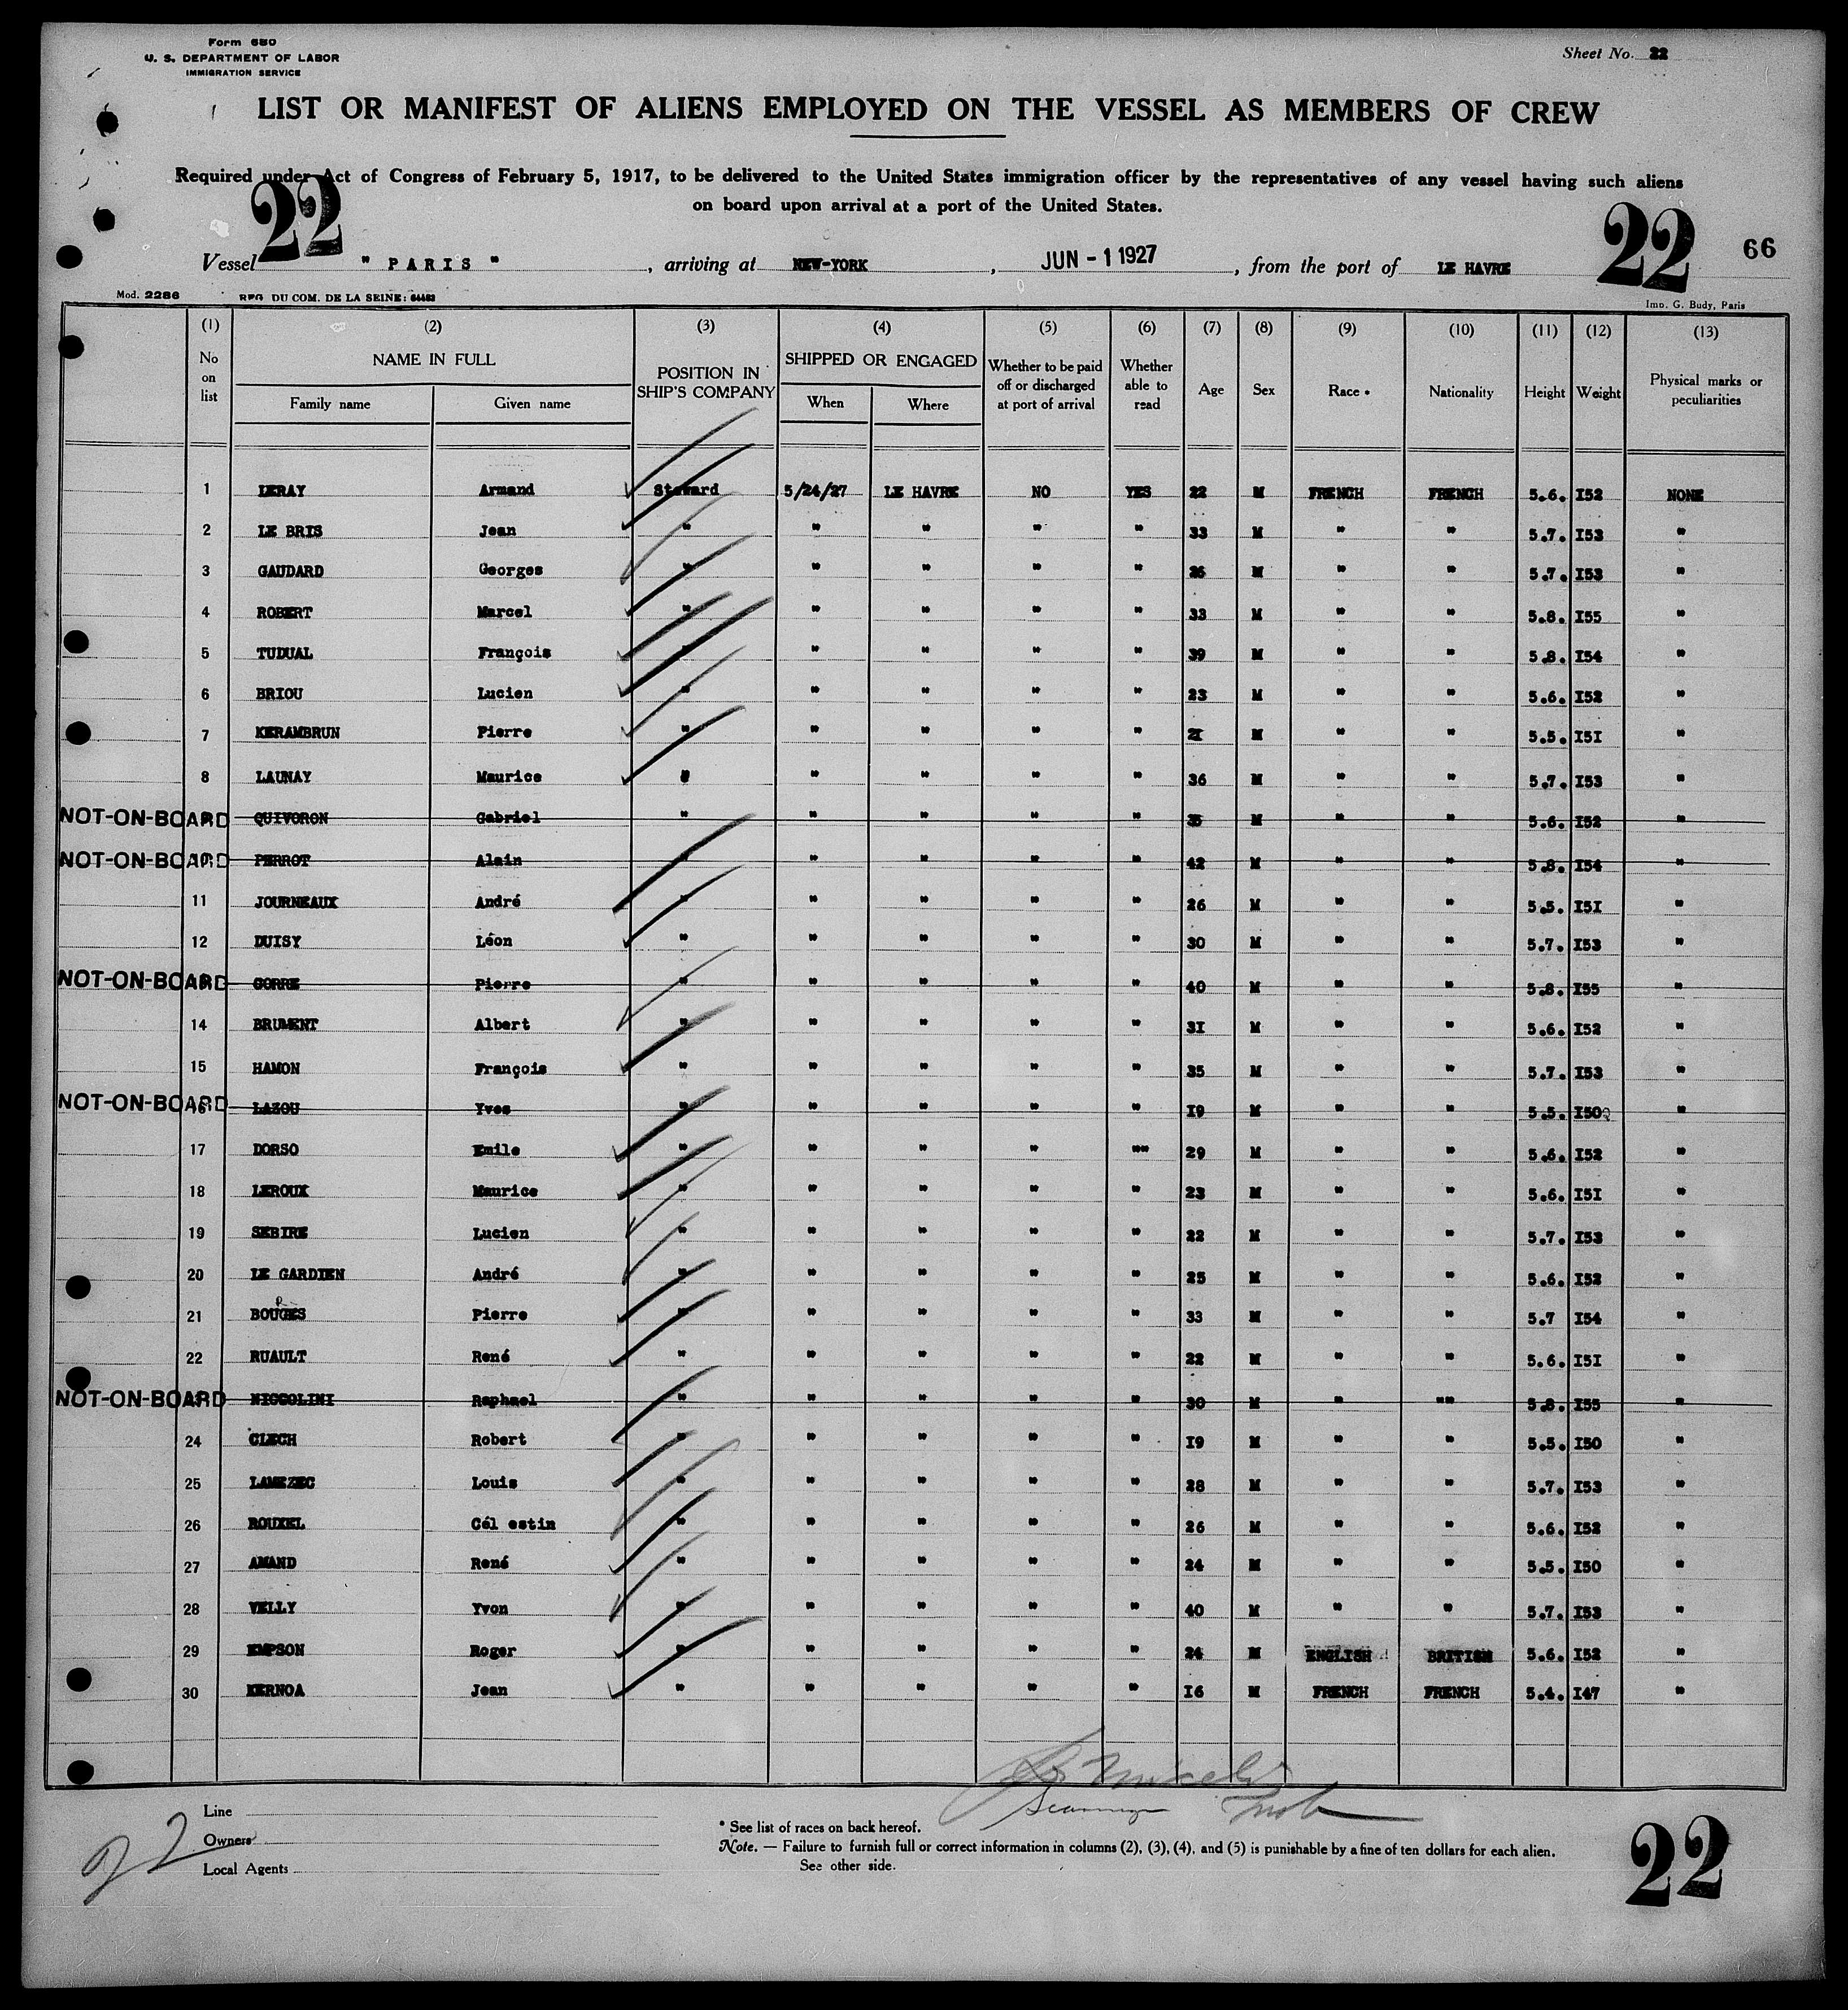 Form 680
U. S. DEPARTMENT OF LABOR
IMMIGRATION SERVICE
Sheet No. 22
LIST OR MANIFEST OF ALIENS EMPLOYED ON THE VESSEL AS MEMBERS OF CREW
Required under Act of Congress of February 5, 1917, to be delivered to the United States immigration officer by the representatives of any vessel having such aliens
on board upon arrival at a port of the United States.
22 22 66
Vessel " PARIS " , arriving at NEW-YORK , JUN - 1 1927 , from the port of LE HAVRE
Mod. 2286 REG. DU COM. DE LA SEINE: Imp. G. Budy, Paris
(1) (2) (3) (4) (5) (6) (7) (8) (9) (10) (11) (12) (13)
No on list NAME IN FULL POSITION IN SHIP'S COMPANY SHIPPED OR ENGAGED Whether to be paid off or discharged at port of arrival Whether able to read Age Sex Race * Nationality Height Weight Physical marks or peculiarities
Family name Given name When Where
1 LERAY Armand Steward 5/24/27 LE HAVRE NO YES 22 M FRENCH FRENCH 5.6. I52 NONE
2 LE BRIS Jean " " " " " 33 M " " 5.7. I53 "
3 GAUDARD Georges " " " " " 26 M " " 5.7. I53 "
4 ROBERT Marcel " " " " " 33 M " " 5.8. I55 "
5 TUDUAL François " " " " " 39 M " " 5.8. I54 "
6 BRIOU Lucien " " " " " 23 M " " 5.6. I52 "
7 KERAMBRUN Pierre " " " " " 2I M " " 5.5. I5I "
8 LAUNAY Maurice " " " " " 36 M " " 5.7. I53 "
NOT-ON-BOARD 9 QUIVORON Gabriel " " " " " 35 M " " 5.6. I52 "
NOT-ON-BOARD 10 PERROT Alain " " " " " 42 M " " 5.8. I54 "
11 JOURNEAUX André " " " " " 26 M " " 5.5. I5I "
12 DUISY Léon " " " " " 30 M " " 5.7. I53 "
NOT-ON-BOARD 13 GORRE Pierre " " " " " 40 M " " 5.8. I55 "
14 BRUMENT Albert " " " " " 3I M " " 5.6. I52 "
15 HAMON François " " " " " 35 M " " 5.7. I53 "
NOT-ON-BOARD 16 LAZOU Yves " " " " " I9 M " " 5.5. I50 "
17 DORSO Emile " " " " "" 29 M " " 5.6. I52 "
18 LEROUX Maurice " " " " " 23 M " " 5.6. I5I "
19 SEBIRE Lucien " " " " " 22 M " " 5.7. I53 "
20 LE GARDIEN André " " " " " 25 M " " 5.6. I52 "
21 BOUGES Pierre " " " " " 33 M " " 5.7 I54 "
22 RUAULT René " " " " " 22 M " " 5.6. I5I "
NOT-ON-BOARD 23 NICCOLINI Raphael " " " " " 30 M " "" 5.8. I55 "
24 CLECH Robert " " " " " I9 M " " 5.5. I50 "
25 LAMEZEC Louis " " " " " 28 M " " 5.7. I53 "
26 ROUXEL Cél estin " " " " " 26 M " " 5.6. I52 "
27 AMAND René " " " " " 24 M " " 5.5. I50 "
28 VELLY Yvon " " " " " 40 M " " 5.7. I53 "
29 EMPSON Roger " " " " " 24 M ENGLISH BRITISH 5.6. I52 "
30 KERNOA Jean " " " " " I6 M FRENCH FRENCH 5.4. I47 "
Line
Owners
Local Agents
22
* See list of races on back hereof.
Note. — Failure to furnish full or correct information in columns (2), (3), (4), and (5) is punishable by a fine of ten dollars for each alien.
See other side.
22